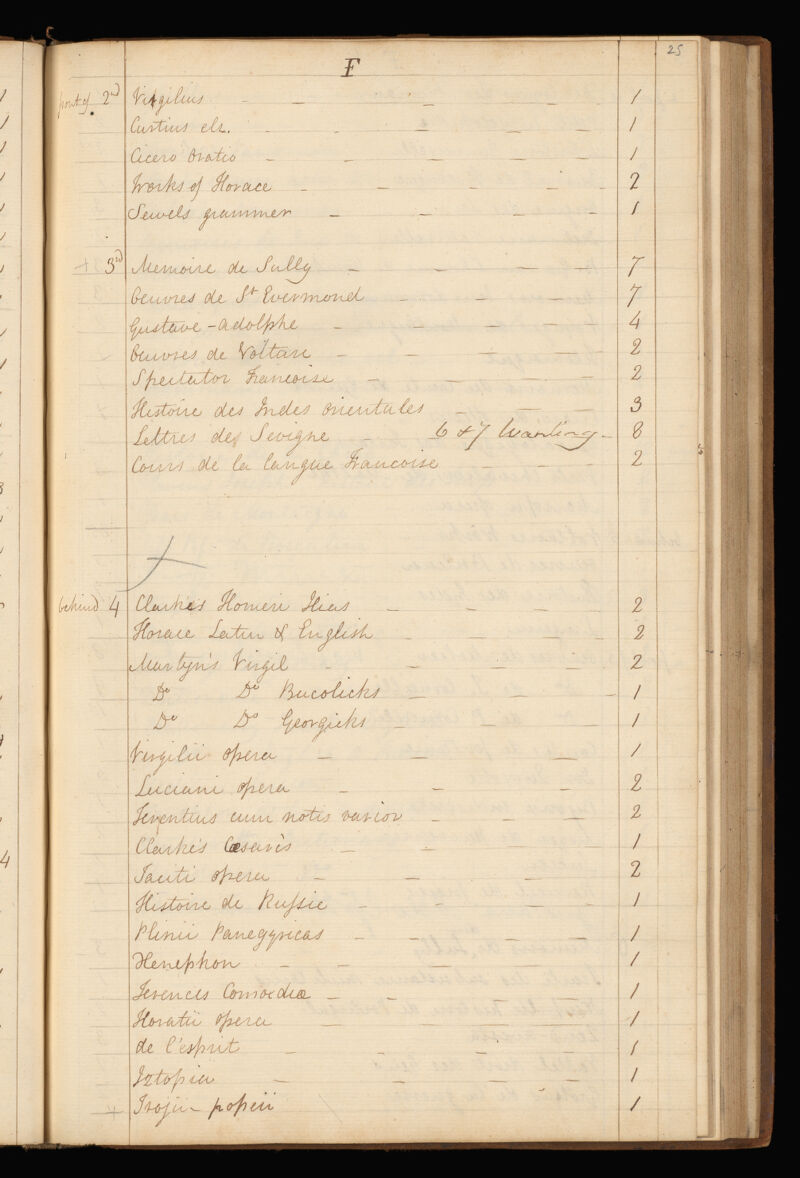 25
F
front of 2nd Virgilius 1
Curtius elz. 1
Cicero Oratio 1
Works of Horace 2
Sewels grammer 1
+ 3rd Memoire de Sully 7
Oeuvres de St Evermond 7
Gustave-adolphe 4
Oeuvres de Voltare 2
Spectator Francoise 2
Histoire des Indes orientales 3
Lettres de Sevigne 6 & 7 Wanting 8
Cours de la langue Francoise 2
behind 4 Clarkes Homeri Ilias 2
Horace Latin & English 2
Martyn's Virgil 2
Do Do Bucolicks 1
Do Do Georgicks 1
Virgilii opera 1
Luciani opera 2
Terentius cum notis varior 2
Clarke's Cæsaris 1
Taciti opera 2
Histoire de Russie 1
Plinii Panegyricas 1
Henephon 1
Terences Comœdiæ 1
Horatii opera 1
de l'esprit 1
Iztopia 1
+ Trojii-popeii 1